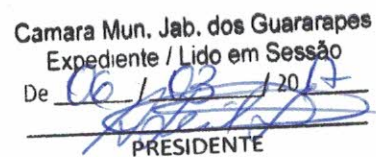 Camara Mun. Jab. dos Guararapes
Expediente / Lido em Sessão
De 06 / 03 / 2017
PRESIDENTE